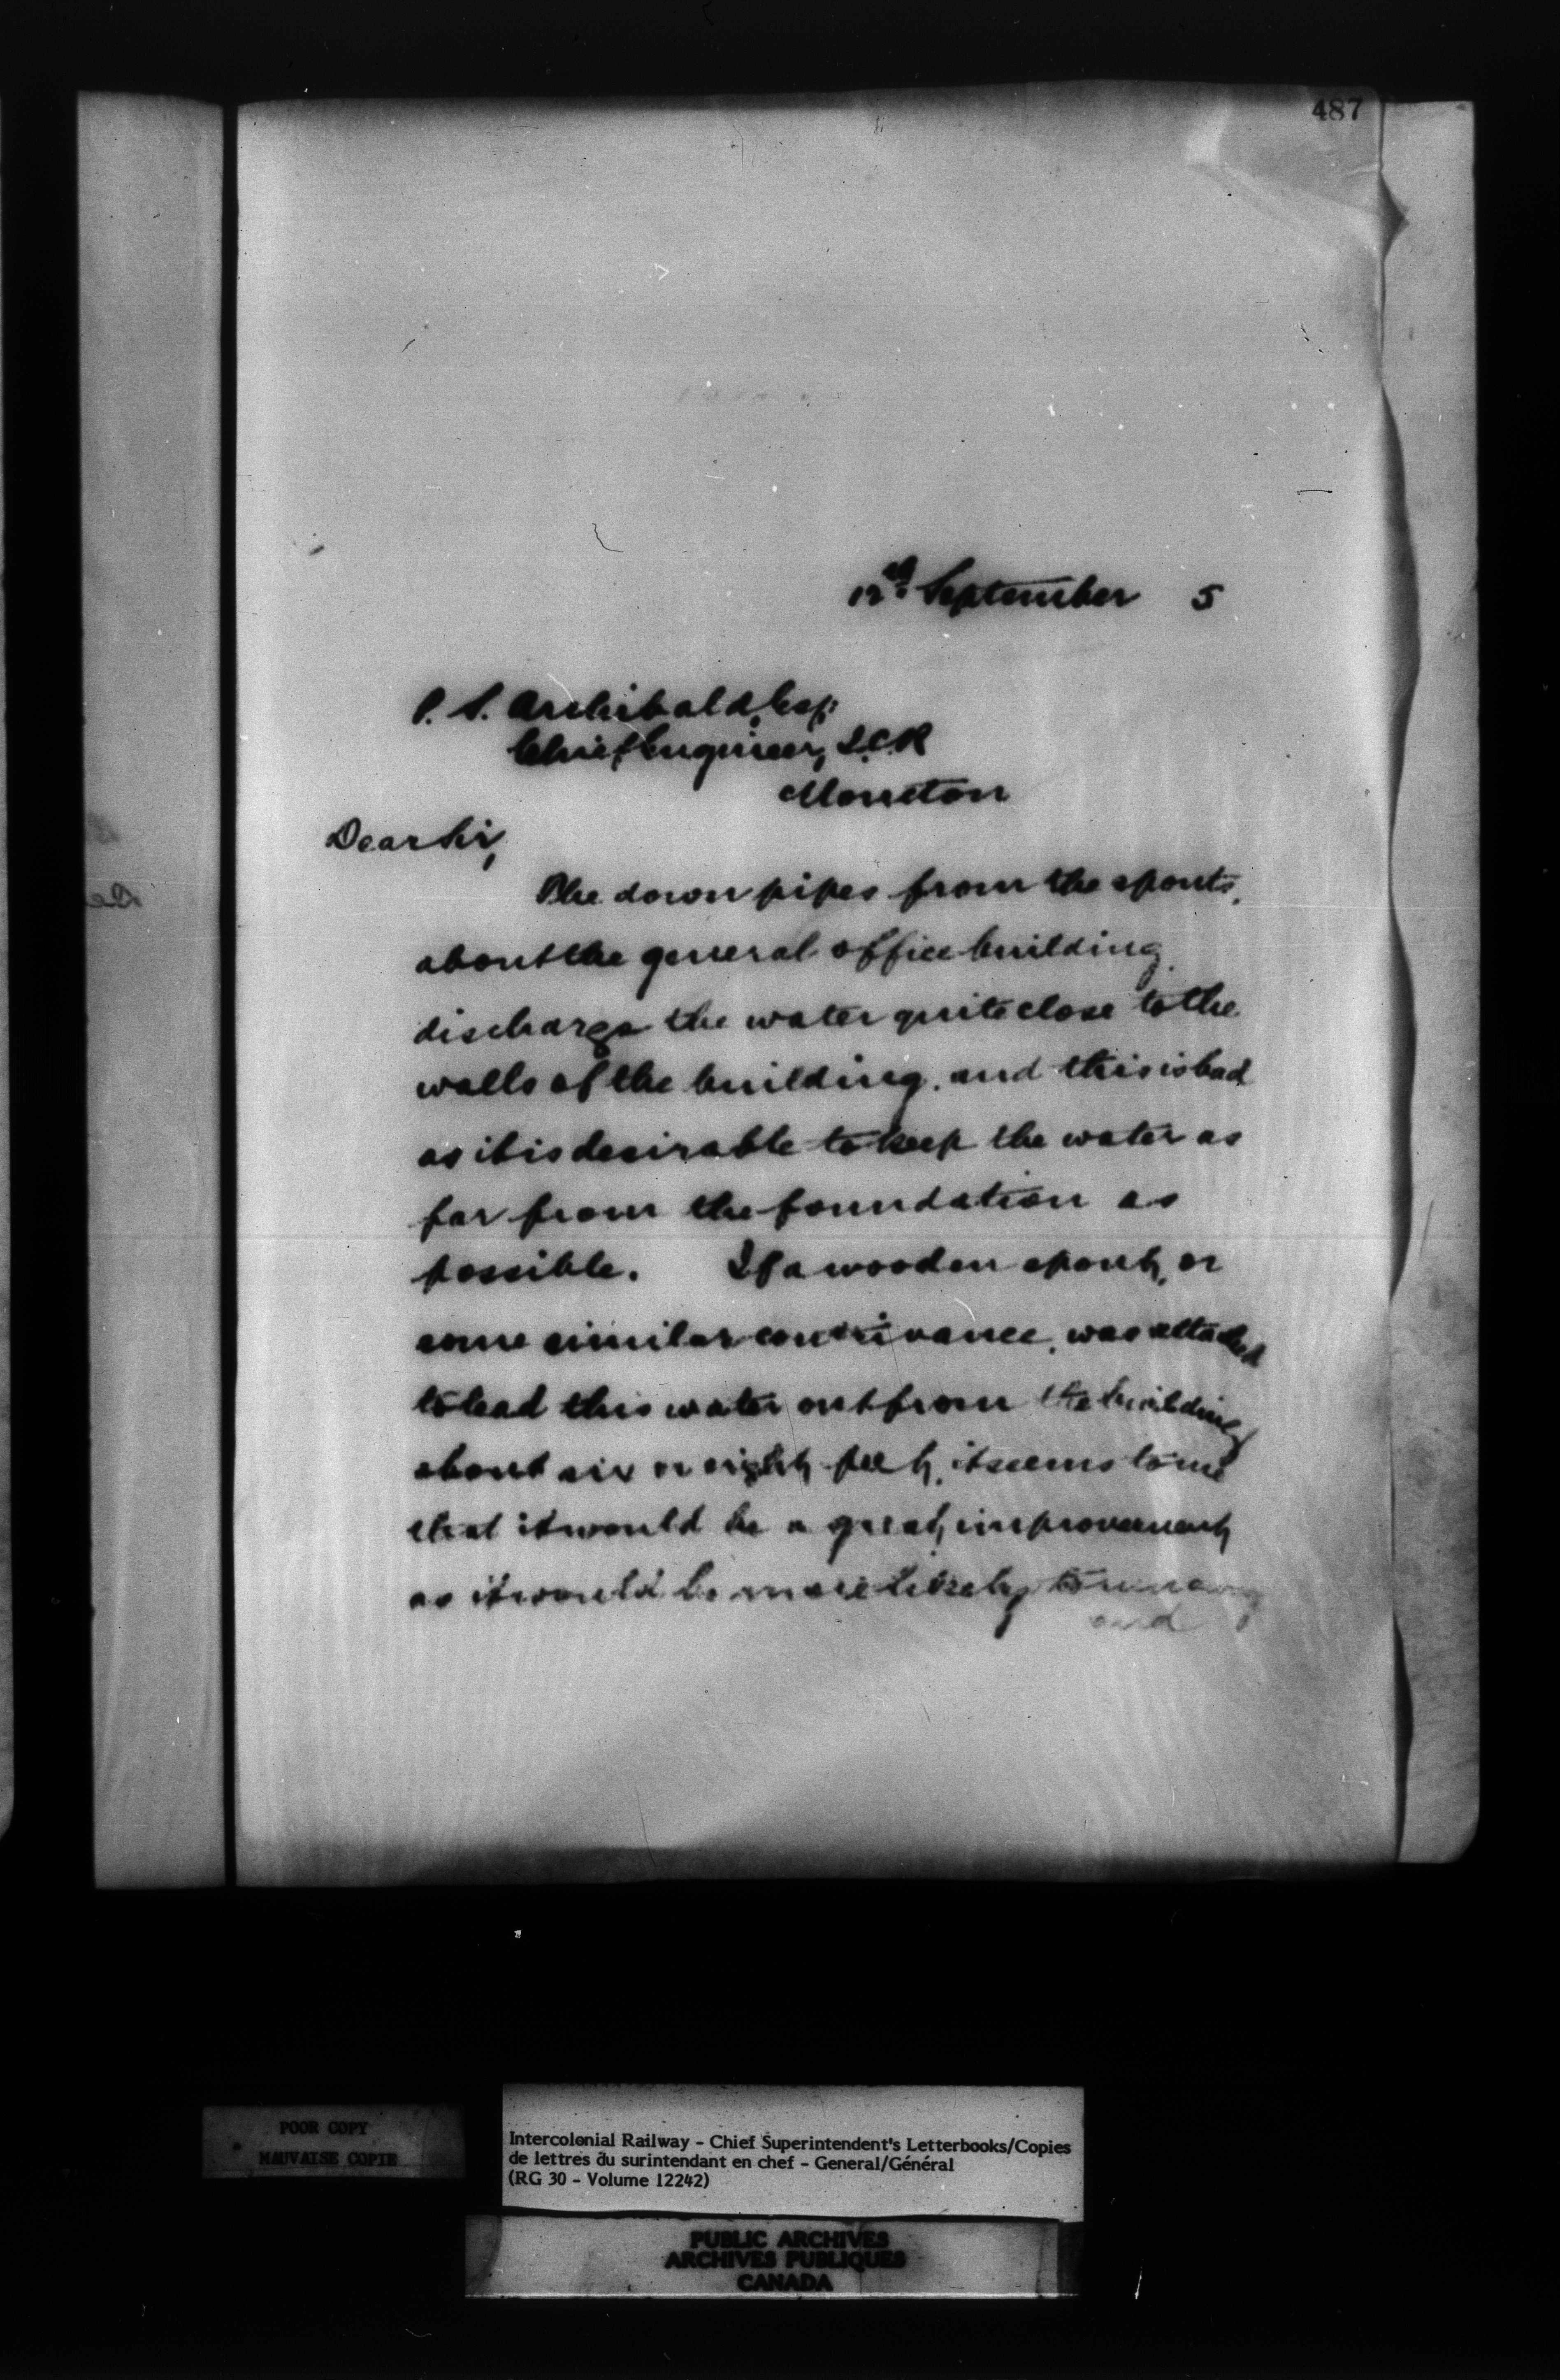 487
12th September 5
P. S. Archibald, Esq.
Chief Engineer, I.C.R
Moncton
Dear Sir,
The down pipes from the spouts,
about the general office building
discharge the water quite close to the
walls of the building, and this is bad
as it is desirable to keep the water as
far from the foundation as
possible. If a wooden spout, or
some similar contrivance, was attached
to lead this water out from the building
about six or eight feet, it seems to me
that it would be a great improvement
as it would be more likely to run away
and
POOR COPY
MAUVAISE COPIE
Intercolonial Railway - Chief Superintendent's Letterbooks/Copies
de lettres du surintendant en chef - General/Général
(RG 30 - Volume 12242)
PUBLIC ARCHIVES
ARCHIVES PUBLIQUES
CANADA